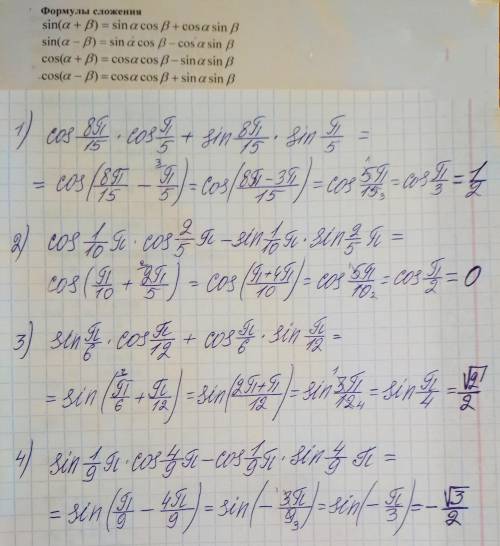 Формулы сложения
sin(α + β) = sin α cos β + cos α sin β
sin(α − β) = sin α cos β − cos α sin β
cos(α + β) = cos α cos β − sin α sin β
cos(α − β) = cos α cos β + sin α sin β
1) cos 8π/15 · cos π/5 + sin 8π/15 · sin π/5 =
= cos(8π/15 − ³π/5) = cos(8π−3π/15) = cos ¹5π/15₃ = cos π/3 = 1/2
2) cos 1/10 π · cos 2/5 π − sin 1/10 π · sin 2/5 π =
cos(π/10 + ²2π/5) = cos(π+4π/10) = cos ¹5π/10₂ = cos π/2 = 0
3) sin π/6 · cos π/12 + cos π/6 · sin π/12 =
= sin(²π/6 + π/12) = sin(2π+π/12) = sin ¹3π/12₄ = sin π/4 = √2/2
4) sin 1/9 π · cos 4/9 π − cos 1/9 π · sin 4/9 π =
= sin(π/9 − 4π/9) = sin(− ¹3π/9₃) = sin(− π/3) = − √3/2